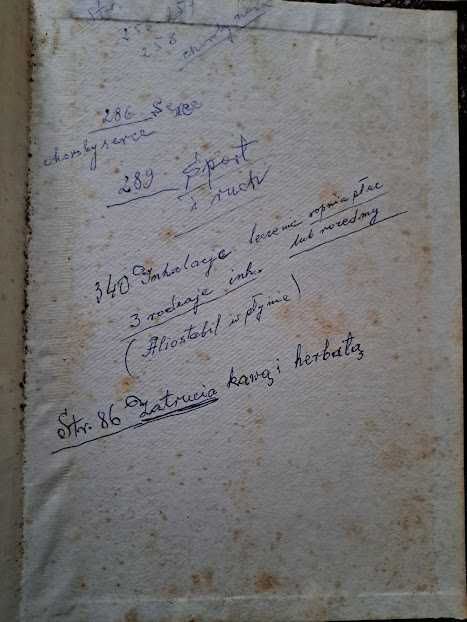 Str.
258
286 Serce
choroby serce
289 Sport
i ruch
340 Inhalacje leczenie ropnia płuc
3 rodzaje inh. lub rozedmy
(Aliostabil w płynie)
Str. 86 Zatrucia kawą i herbatą